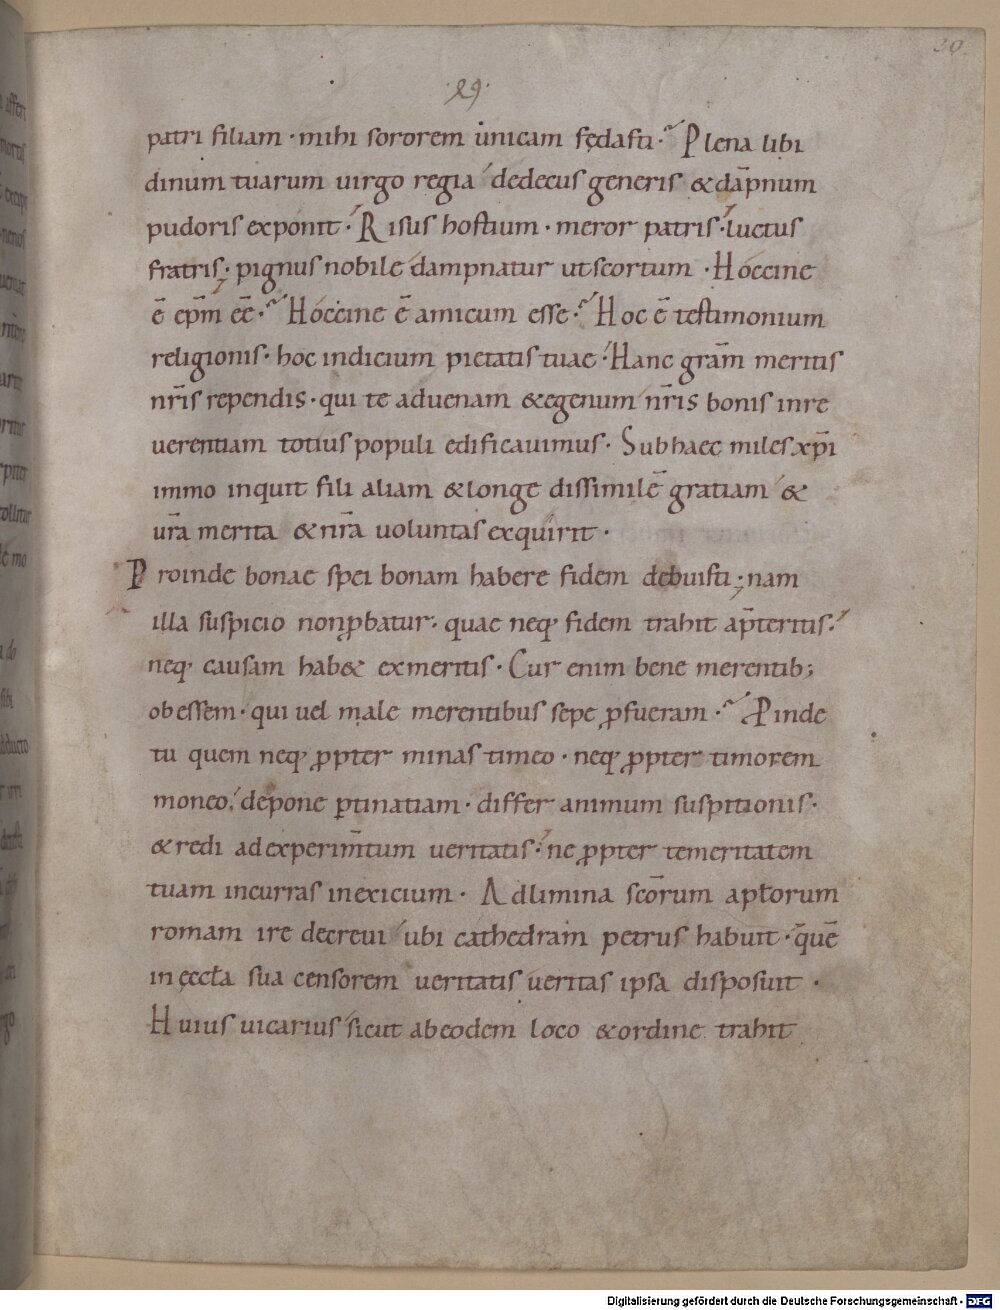 30.
29
patri filiam · mihi sororem unicam fędasti · Plena libi
dinum tuarum uirgo regia dedecus generis & dāpnum
pudoris exponit · Risus hostium · meror patris · luctus
fratris; pignus nobile dampnatur ut scortum · Hoccine
ē ep̄m eē · Hoccine ē amicum esse · Hoc ē testimonium
religionis · hoc indicium pietatis tuae · Hanc grām meritis
nr̄is rependis · qui te aduenam & egenum nr̄is bonis in re
uerentiam totius populi edificauimus · Sub haec miles xp̄i
immo inquit fili aliam & longe dissimilē gratiam &
ur̄a merita & nr̄a uoluntas exquirit ·
Proinde bonae spei bonam habere fidem debuisti; nam
illa suspicio non ꝓbatur · quae neq; fidem trahit a p̄teritis ·
neq; causam hab& ex meritis · Cur enim bene merentib;
obessem · qui uel male merentibus sepe ꝓfueram · Ꝓinde
tu quem neq; ꝓpter minas timeo · neq; ꝓpter timorem
moneo, depone ꝑtinatiam · differ animum suspitionis ·
& redi ad experim̄tum ueritatis · ne ꝓpter temeritatem
tuam incurras in exicium · Ad limina sc̄orum apl̄orum
romam ire decreui ubi cathedram petrus habuit · quē
in ęccl̄a sua censorem ueritatis ueritas ipsa disposuit ·
Huius uicarius sicut ab eodem loco & ordine trahit
Digitalisierung gefördert durch die Deutsche Forschungsgemeinschaft - DFG